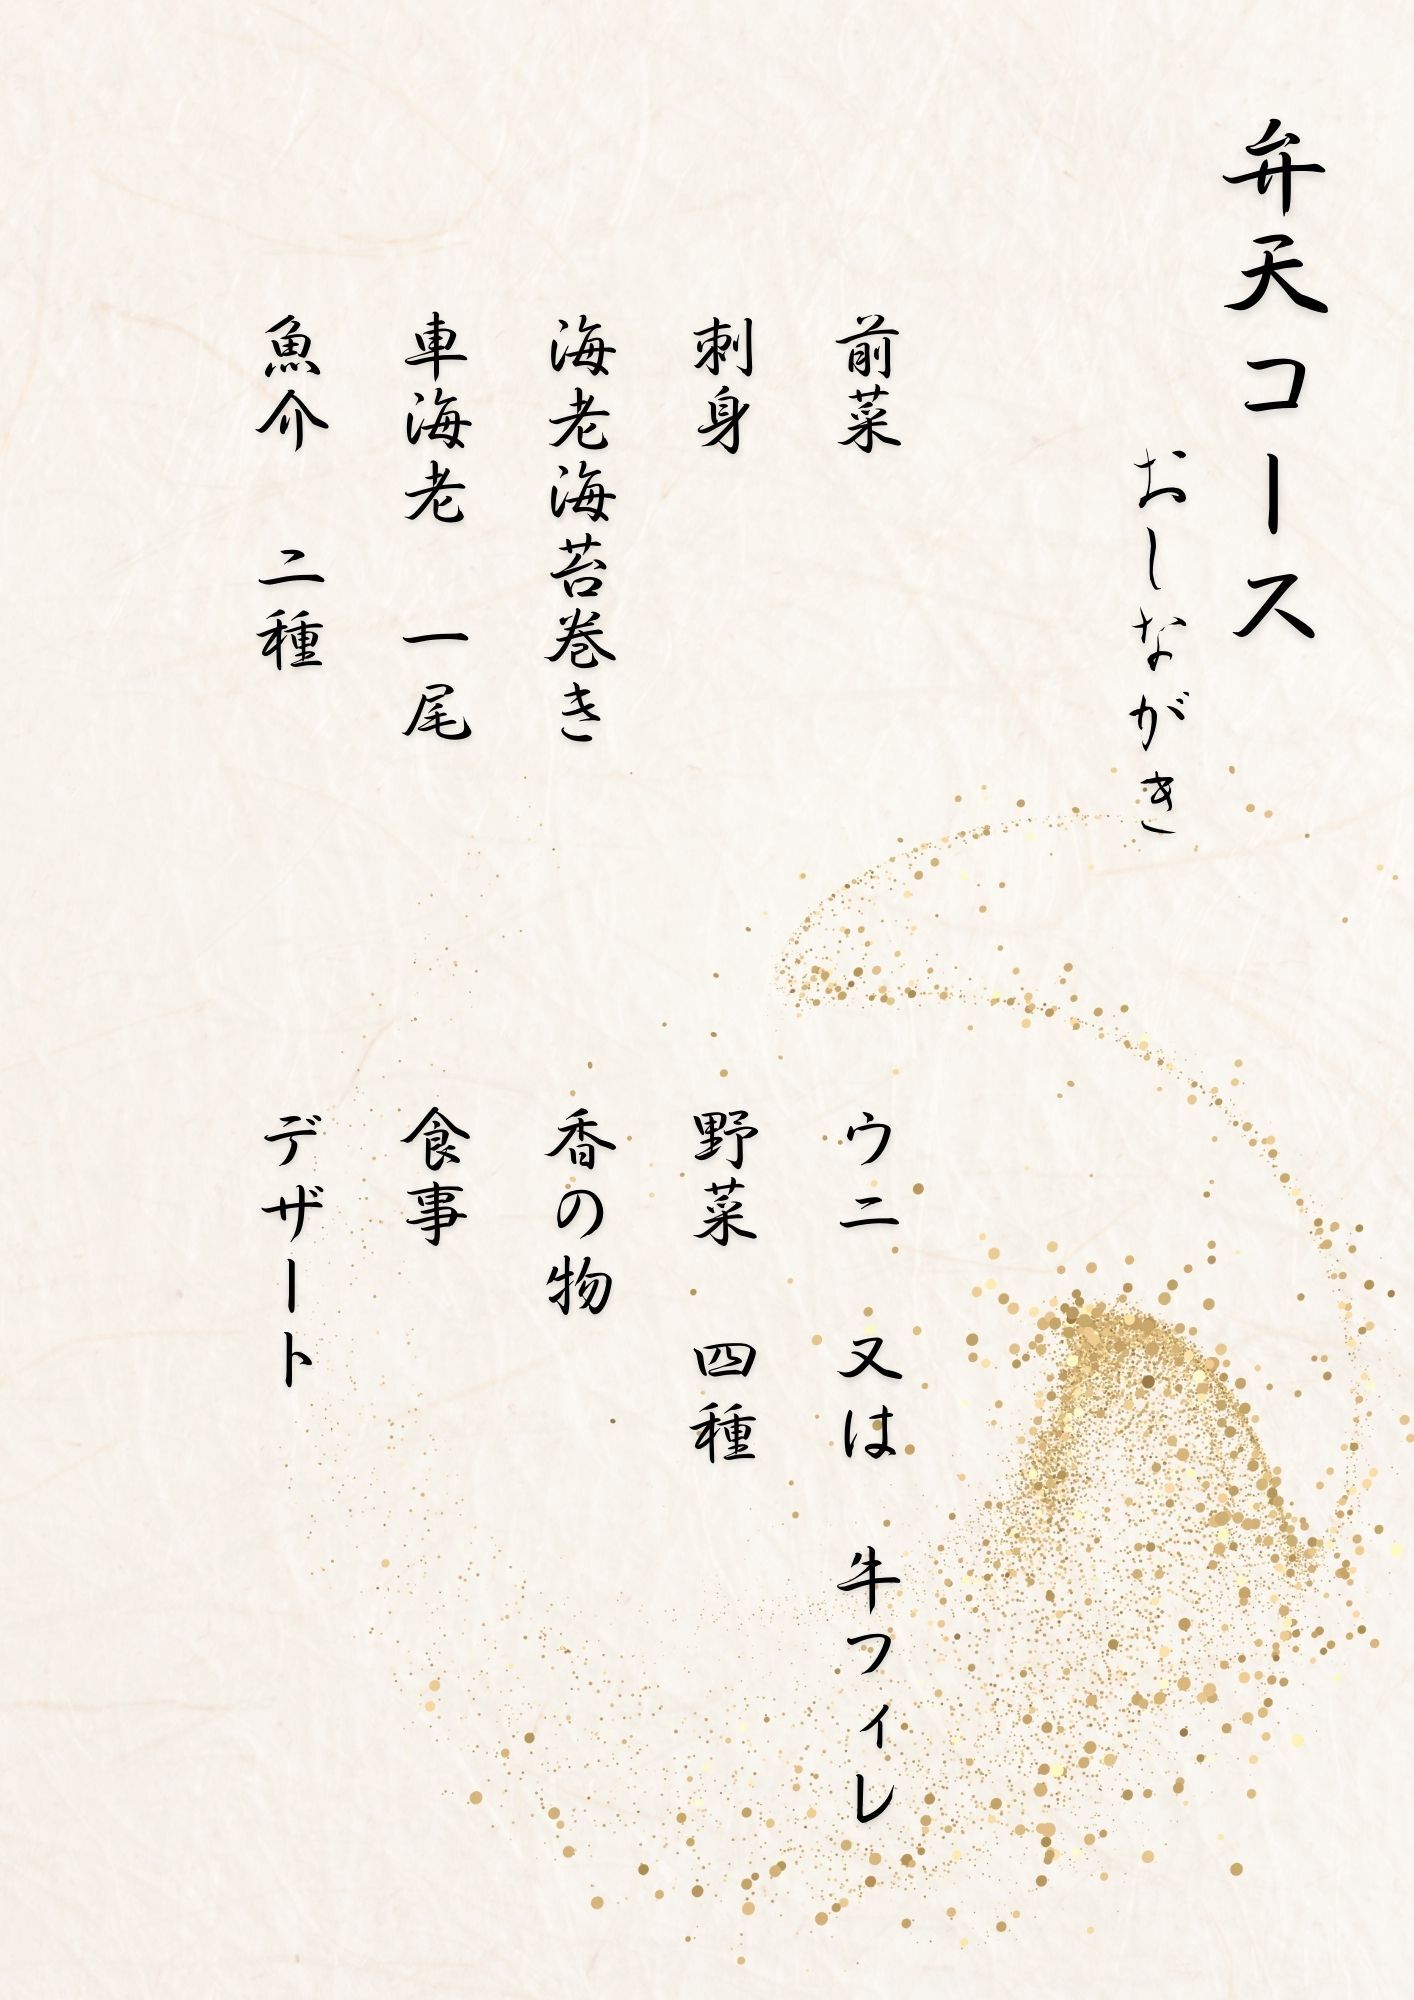 弁天コース
おしながき
前菜
刺身
海老海苔巻き
車海老 一尾
魚介 二種
ウニ 又は 牛フィレ
野菜 四種
香の物
食事
デザート